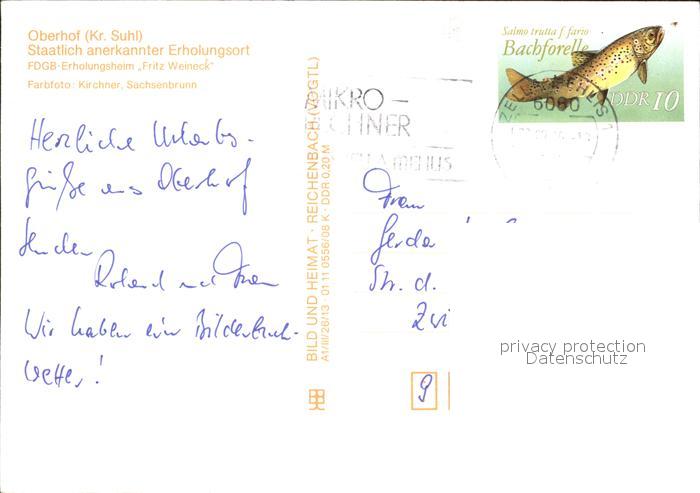 Oberhof (Kr. Suhl)
Staatlich anerkannter Erholungsort
FDGB-Erholungsheim „Fritz Weineck"
Farbfoto: Kirchner, Sachsenbrunn
Herzliche Urlaubs-
grüße aus Oberhof
senden
Roland und Frau
Wir haben ein Bilderbuch-
wetter!
BILD UND HEIMAT · REICHENBACH (VOGTL)
A1/III/26/13 · 01 11 0556/08 K · DDR 0,20 M
MIKRO-
ZELLA-MEHLIS
Salmo trutta f. fario
Bachforelle
DDR 10
ZELLA-MEHLIS 1
6060
Frau
Gerda
Str. d.
Zwi
9
privacy protection
Datenschutz